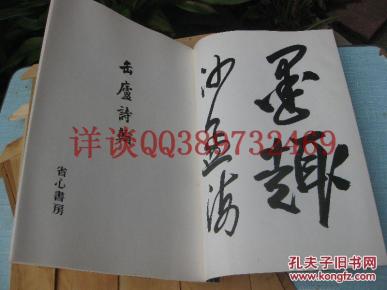 墨趣
沙孟海
缶廬詩集
省心書房
详谈QQ389732469
孔夫子旧书网
www.kongfz.com